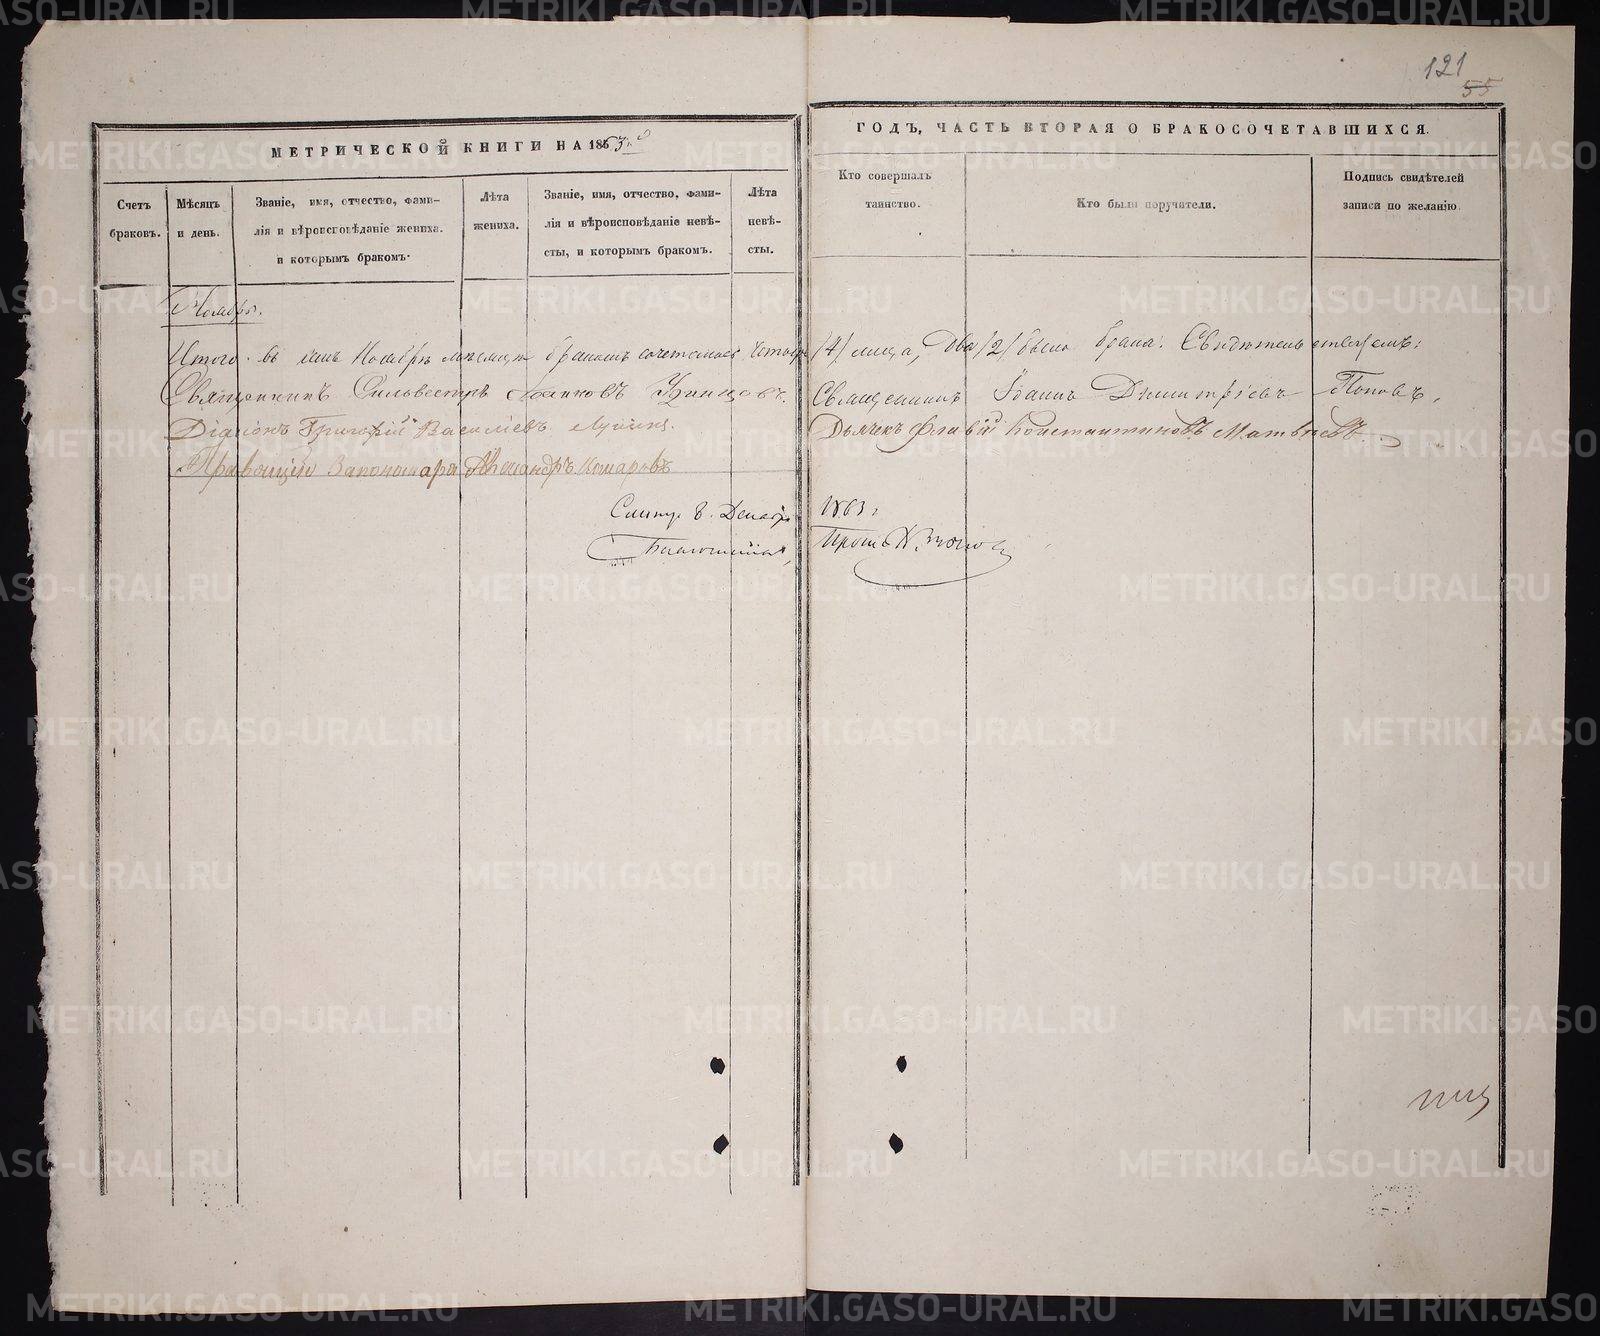 121
55
МЕТРИЧЕСКОЙ КНИГИ НА 1863 ГОДЪ, ЧАСТЬ ВТОРАЯ О БРАКОСОЧЕТАВШИХСЯ.
Счетъ браковъ.
Мѣсяцъ и день.
Званіе, имя, отчество, фами-
лія и вѣроисповѣданіе жениха.
и которымъ бракомъ.
Лѣта жениха.
Званіе, имя, отчество, фами-
лія и вѣроисповѣданіе невѣ-
сты, и которымъ бракомъ.
Лѣта невѣ-
сты.
Кто совершалъ
таинство.
Кто были поручатели.
Подпись свидѣтелей
записи по желанію.
Ноябрь.
Итого въ Ноябрѣ мѣсяцѣ бракомъ сочеталось четыре /4/ лица, два /2/ было брака.
Священникъ Сильвестръ Священникъ Іоаннъ Димитріевъ Поповъ.
Діаконъ Григорій Васильевъ Дьячекъ Флавій Константиновъ Матвѣевъ.
Правящій Александръ Комаровъ
Декабр 1863 г.
METRIKI.GASO-URAL.RU